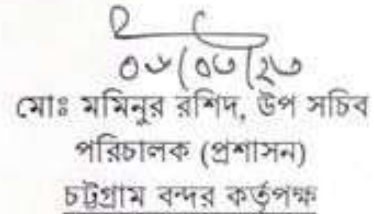 ০৬/০৩/২৩
মোঃ মমিনুর রশিদ, উপ সচিব
পরিচালক (প্রশাসন)
চট্টগ্রাম বন্দর কর্তৃপক্ষ